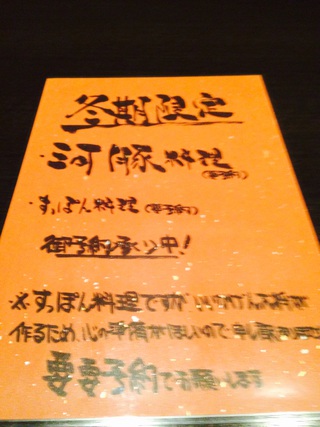 冬期限定
・河豚料理
(要予約)
・すっぽん料理(要予約)
御予約承り中!
※すっぽん料理ですが、
作るため、心の準備がほしいので
要要予約でお願いします